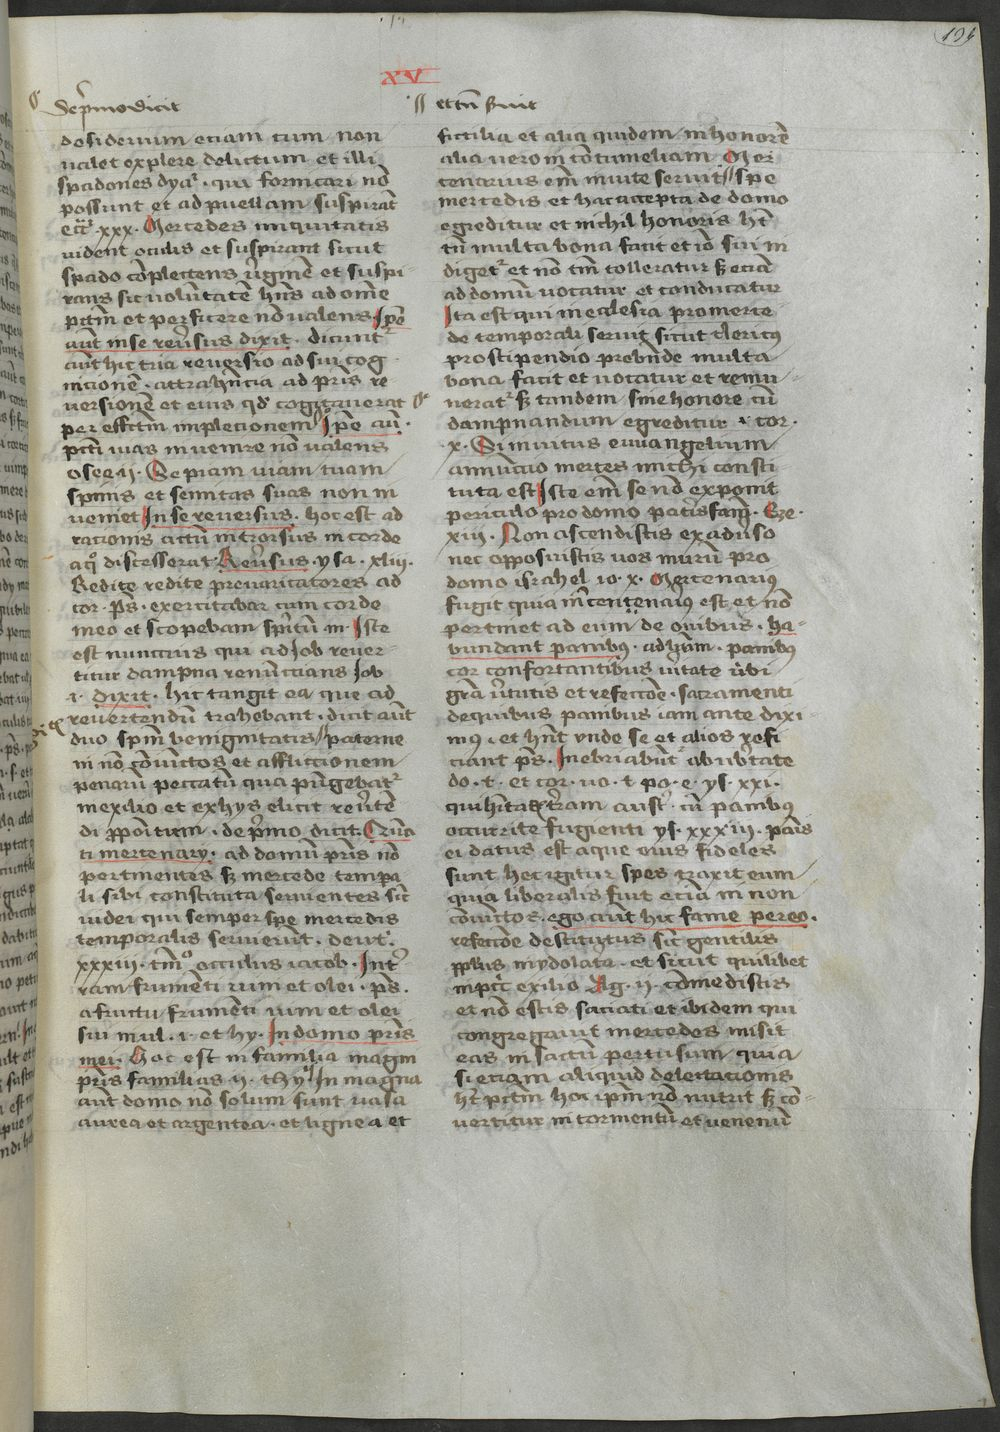 XV
194
De pͥmo dicit
desiderium etiam cum non
ualet explere delictum et illi
spadones dyaᷓ. qui fornicari nō
possunt et ad puellam suspirāt
eccᷓ. xxx. Mercedes iniquitatis
uident oculis et suspirant sicut
spado cōplectens ūginē et suspi
rans sic volūtatē hn̄s ad om̄e
pctm̄ et perficere nō valens Ipse
aūt in se reūsus dixit. dicunt᷑
aūt hic tria reuersio ad sui cog
nicionē. attrahēncia ad pr̄is re
versionē et eius qd̓ cogitauerat
per effctm̄ impletionem
pcti uias inuenire nō valens
osee ii. Sepiam uiam tuam
spinis et semitas suas non in
ueniet In se reuersus. hoc est ad
rationis actum introrsus in corde
a qͦ discesserat Reūsus. ysa. xliii.
Redite redite preuaricatores ad
cor. ps. exercitabar cum corde
meo et scopebam spirituͫ m̄. Iste
est nuncius qui ad Job reuer
titur dampna renūcians Job
i. dixit. hic tangit ea que ad
reuertendū trahebant. dicit aūt
duo spm̄ benignitatis // paterne
in nō cōiunctos et afflictionem
penarū peccatū qua pūgebat᷑
in exilio et ex hys elicit reūtē
di ppōitum. de pͥmo dicit. Quā
ti mercenary. ad domū pr̄is nō
pertinentes sꝫ mercede tempa
li sibi constituta seruientes sic̄
iudei qui semper spe mercedis
temporalis seruierūt. deut.
xxxiii. occulus iacob. In tr̄
ram frumēti uini et olei. ps.
a fructu frumēti uini et olei
sui mul. i. et hy. In domo pr̄is
mei. Hoc est in familia magni
pr̄is familias ii. thyͥ In magna
aūt domo nō solum sunt uasa
aurea et argentea. et lignea et
et tn̄ suit
fictilia et alia quidem in honorē
alia uero in cōtumeliam Mer
cenarius em̄ inuite seruit // spe
mercedis et hac accepta de domo
egreditur et nichil honoris hr̄t
tn̄ multa bona facit et iō sui in
diget᷑ et nō tm̄ tolleratur sꝫ eciā
ad domū uocatur et conducatur
Ita est qui in ecclesia pro merce
de temporali seruit sicut clericꝰ
pro stipendio prebnde multa
bona facit et uocatur et remu
nerat᷑ sꝫ tandem sine honore cū
dampnandum egreditur i cor.
x. Si inuitus euuangelium
annuncio merces michi consti
tuta est Iste em̄ se nō exponit
periculo pro domo patrisfam̄. Eze.
xiii. Non ascendistis ex aduso
nec opposuistis uos murū pro
domo israhel io. x. Mercenariꝰ
fugit quia mercenariꝰ est et nō
pertinet ad eum de ouibus. ha
bundant panibꝰ. panibꝰ
cor confortantibus uitate ūbi
grā ūtutis et refectōe. sacramenti
de quibus panibus iam ante dixi
mꝰ. et hn̄t vnde se et alios refi
ciant ps. Inebriabūt᷑ ab ub̄tate
do. t. et cor. ysͣ. xxi.
qui h̄itas t̄ram austͥ. cū panibꝰ
occurrite fugienti ysͣ. xxxiii. panis
ei datus est aque eius fideles
sunt hec igitur spes traxit eum
quia liberalis fuit eciā in non
cōiunctos. ego aūt hic fame pereo.
refectōe destitutus sic̄ gentilis
pplus in ydolatͥa. et sicut quilibet
in pctͦ exilio Ag. ii. cōmedistis
et nō estis saciati et ibidem qui
congregauit mercedes misit
eas in saccū pertusum quia
si etiam aliquid delectacionis
h̄t pctm̄ hoc ipm̄ nō nutrit sꝫ cō
vertitur in tormentū et venenū